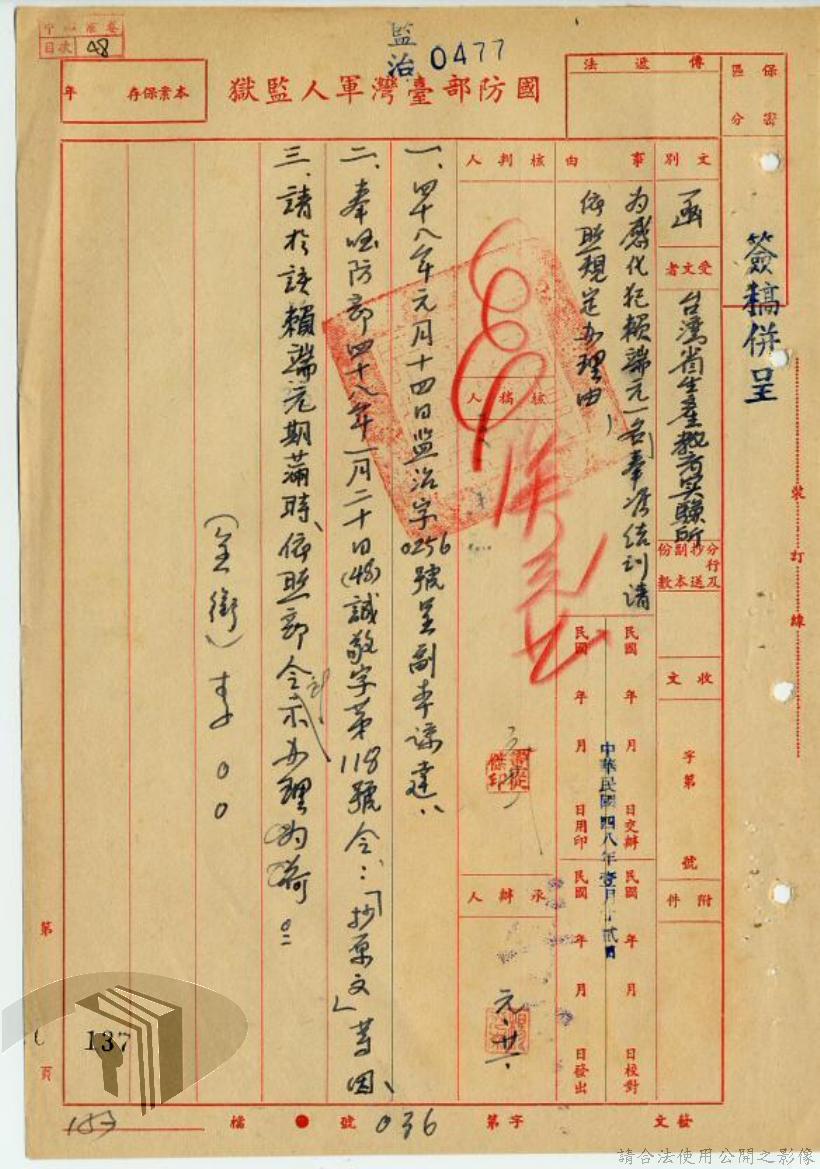 監治 0477
目次 48
國防部臺灣軍人監獄
本案保存 年
傳遞法
保密區分
簽稿併呈
文別 函
受文者 台灣省生產教育實驗所
分行及抄送副本份數
收文 字第 號
附件
事由 為感化犯賴端元一名奉准結訓請
依照規定办理由
民國 年 月 日交辦
民國 年 月 日校對
民國 年 月 日用印
民國 年 月 日發出
中華民國四八年壹月
核判人
核稿人
承辦人
元、廿
一、四十八年元月十四日监治字0256號呈副本諒達、
二、奉國防部四十八年一月二十日(48)誠敬字第118號令:「抄原文」等因、
三、請於該賴端元期滿時、依照部令示办理為荷。
(全銜)李○○
裝訂線
第 頁
137
發文 字第 036 號 檔
請合法使用公開之影像